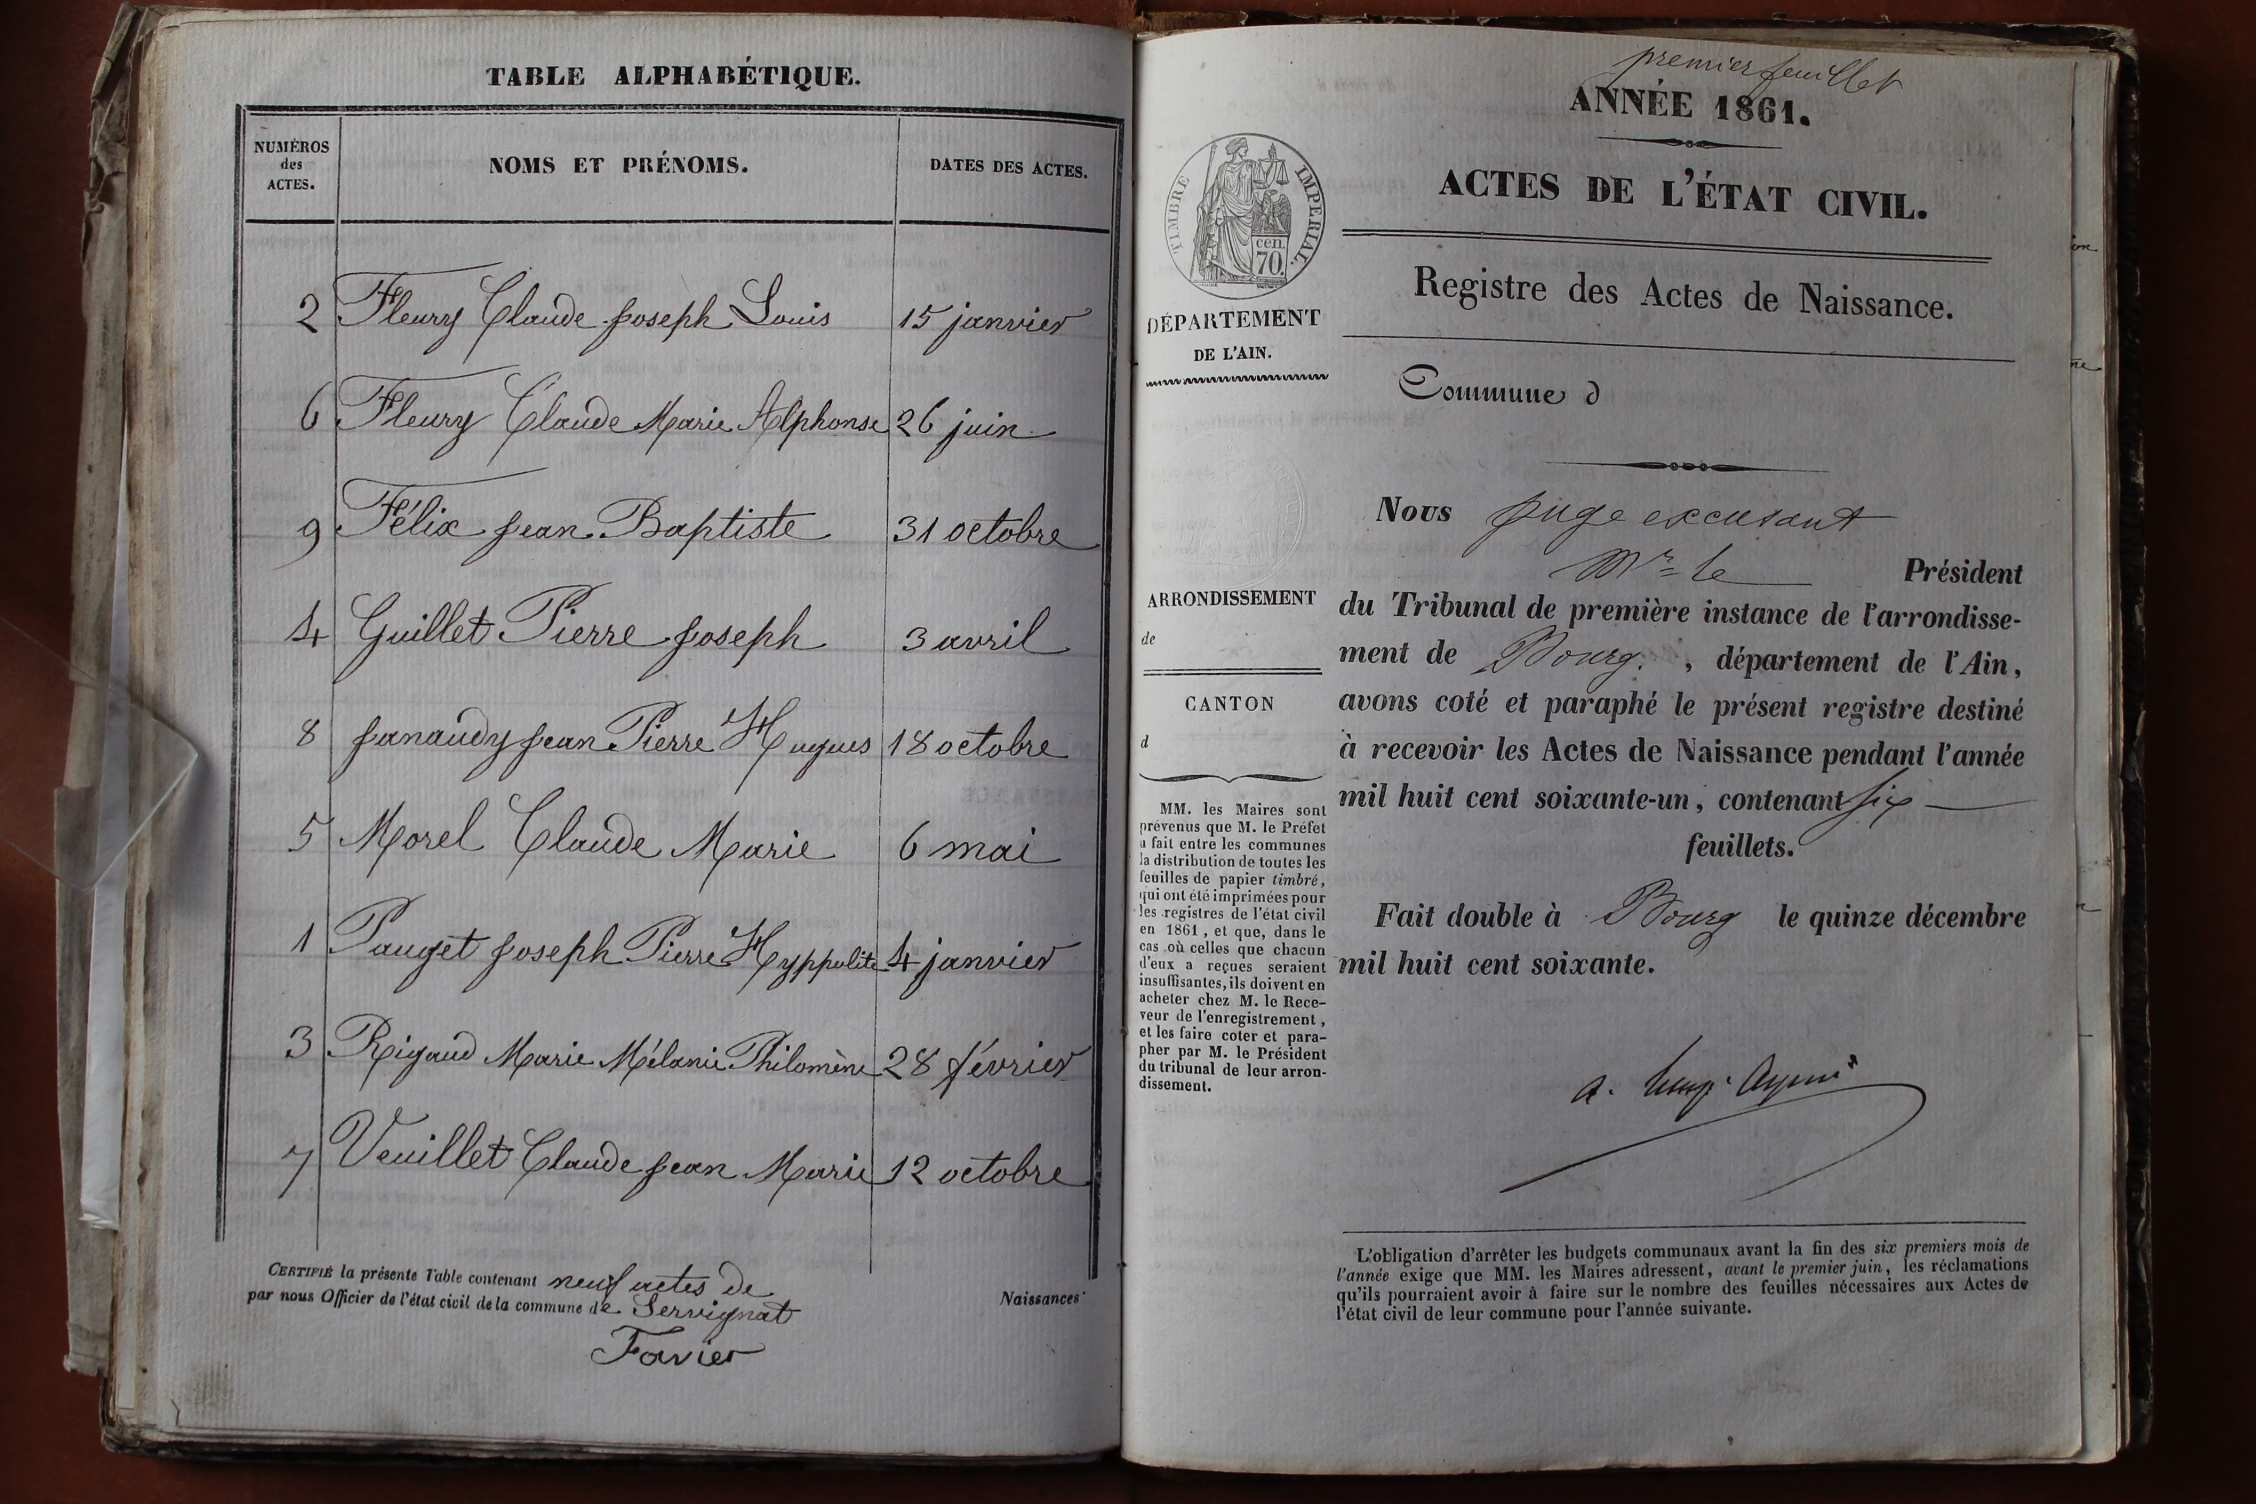 TABLE ALPHABÉTIQUE.
NUMÉROS
des
ACTES.
NOMS ET PRÉNOMS.
DATES DES ACTES.
2 Fleury Claude Joseph Louis 15 janvier
6 Fleury Claude Marie Alphonse 26 juin
9 Félix Jean Baptiste 31 octobre
4 Guillet Pierre Joseph 3 avril
8 Janaudy Jean Pierre Hugues 18 octobre
5 Morel Claude Marie 6 mai
1 Pauget Joseph Pierre Hyppolite 4 janvier
3 Rigaud Marie Mélanie Philomène 28 février
7 Veuillet Claude Jean Marie 12 octobre
CERTIFIÉ la présente Table contenant neuf actes de
par nous Officier de l'état civil de la commune de Servignat
Naissances
Favier
premier feuillet
ANNÉE 1861.
ACTES DE L'ÉTAT CIVIL.
Registre des Actes de Naissance.
TIMBRE IMPERIAL.
cen.
70.
DÉPARTEMENT
DE L'AIN.
ARRONDISSEMENT
de
CANTON
d
MM. les Maires sont
prévenus que M. le Préfet
a fait entre les communes
la distribution de toutes les
feuilles de papier timbré,
qui ont été imprimées pour
les registres de l'état civil
en 1861, et que, dans le
cas où celles que chacun
d'eux a reçues seraient
insuffisantes, ils doivent en
acheter chez M. le Rece-
veur de l'enregistrement,
et les faire coter et para-
pher par M. le Président
du tribunal de leur arron-
dissement.
Commune d
Nous juge excusant
Mr le Président
du Tribunal de première instance de l'arrondisse-
ment de Bourg. , département de l'Ain,
avons coté et paraphé le présent registre destiné
à recevoir les Actes de Naissance pendant l'année
mil huit cent soixante-un, contenant six
feuillets.
Fait double à Bourg le quinze décembre
mil huit cent soixante.
L'obligation d'arrêter les budgets communaux avant la fin des six premiers mois de
l'année exige que MM. les Maires adressent, avant le premier juin, les réclamations
qu'ils pourraient avoir à faire sur le nombre des feuilles nécessaires aux Actes de
l'état civil de leur commune pour l'année suivante.